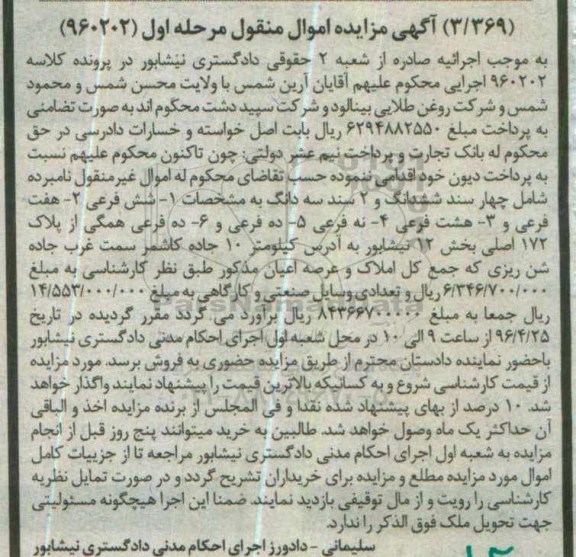 (۳/۳۶۹) آگهی مزایده اموال منقول مرحله اول (۹۶۰۲۰۲)
به موجب اجرائیه صادره از شعبه ۲ حقوقی دادگستری نیشابور در پرونده کلاسه
۹۶۰۲۰۲ اجرایی محکوم علیهم آقایان آرین شمس با ولایت محسن شمس و محمود
شمس و شرکت روغن طلایی بینالود و شرکت سپید دشت محکوم اند به صورت تضامنی
به پرداخت مبلغ ۶۲۹۴۸۸۲۵۵۰ ریال بابت اصل خواسته و خسارات دادرسی در حق
محکوم له بانک تجارت و پرداخت نیم عشر دولتی: چون تاکنون محکوم علیهم نسبت
به پرداخت دیون خود اقدامی ننموده حسب تقاضای محکوم له اموال غیرمنقول نامبرده
شامل چهار سند ششدانگ و ۲ سند سه دانگ به مشخصات ۱- شش فرعی ۲- هفت
فرعی و ۳- هشت فرعی ۴- نه فرعی ۵- ده فرعی و ۶- ده فرعی همگی از پلاک
۱۷۲ اصلی بخش ۱۲ نیشابور به آدرس کیلومتر ۱۰ جاده کاشمر سمت غرب جاده
شن ریزی که جمع کل املاک و عرصه اعیان مذکور طبق نظر کارشناسی به مبلغ
۶/۳۴۶/۷۰۰/۰۰۰ ریال و تعدادی وسایل صنعتی و کارگاهی به مبلغ ۱۴/۵۵۳/۰۰۰/۰۰۰
ریال جمعا به مبلغ ۸۴۳۶۶۷۰۰۰۰۰ ریال برآورد می گردد مقرر گردیده در تاریخ
۹۶/۴/۲۵ از ساعت ۹ الی ۱۰ در محل شعبه اول اجرای احکام مدنی دادگستری نیشابور
باحضور نماینده دادستان محترم از طریق مزایده حضوری به فروش برسد. مورد مزایده
از قیمت کارشناسی شروع و به کسانیکه بالاترین قیمت را پیشنهاد نمایند واگذار خواهد
شد. ۱۰ درصد از بهای پیشنهاد شده نقدا و فی المجلس از برنده مزایده اخذ و الباقی
آن حداکثر یک ماه وصول خواهد شد. طالبین به خرید میتوانند پنج روز قبل از انجام
مزایده به شعبه اول اجرای احکام مدنی دادگستری نیشابور مراجعه تا از جزییات کامل
اموال مورد مزایده مطلع و مزایده برای خریداران تشریح گردد و در صورت تمایل نظریه
کارشناسی را رویت و از مال توقیفی بازدید نمایند. ضمنا این اجرا هیچگونه مسئولیتی
جهت تحویل ملک فوق الذکر را ندارد.
سلیمانی - دادورز اجرای احکام مدنی دادگستری نیشابور